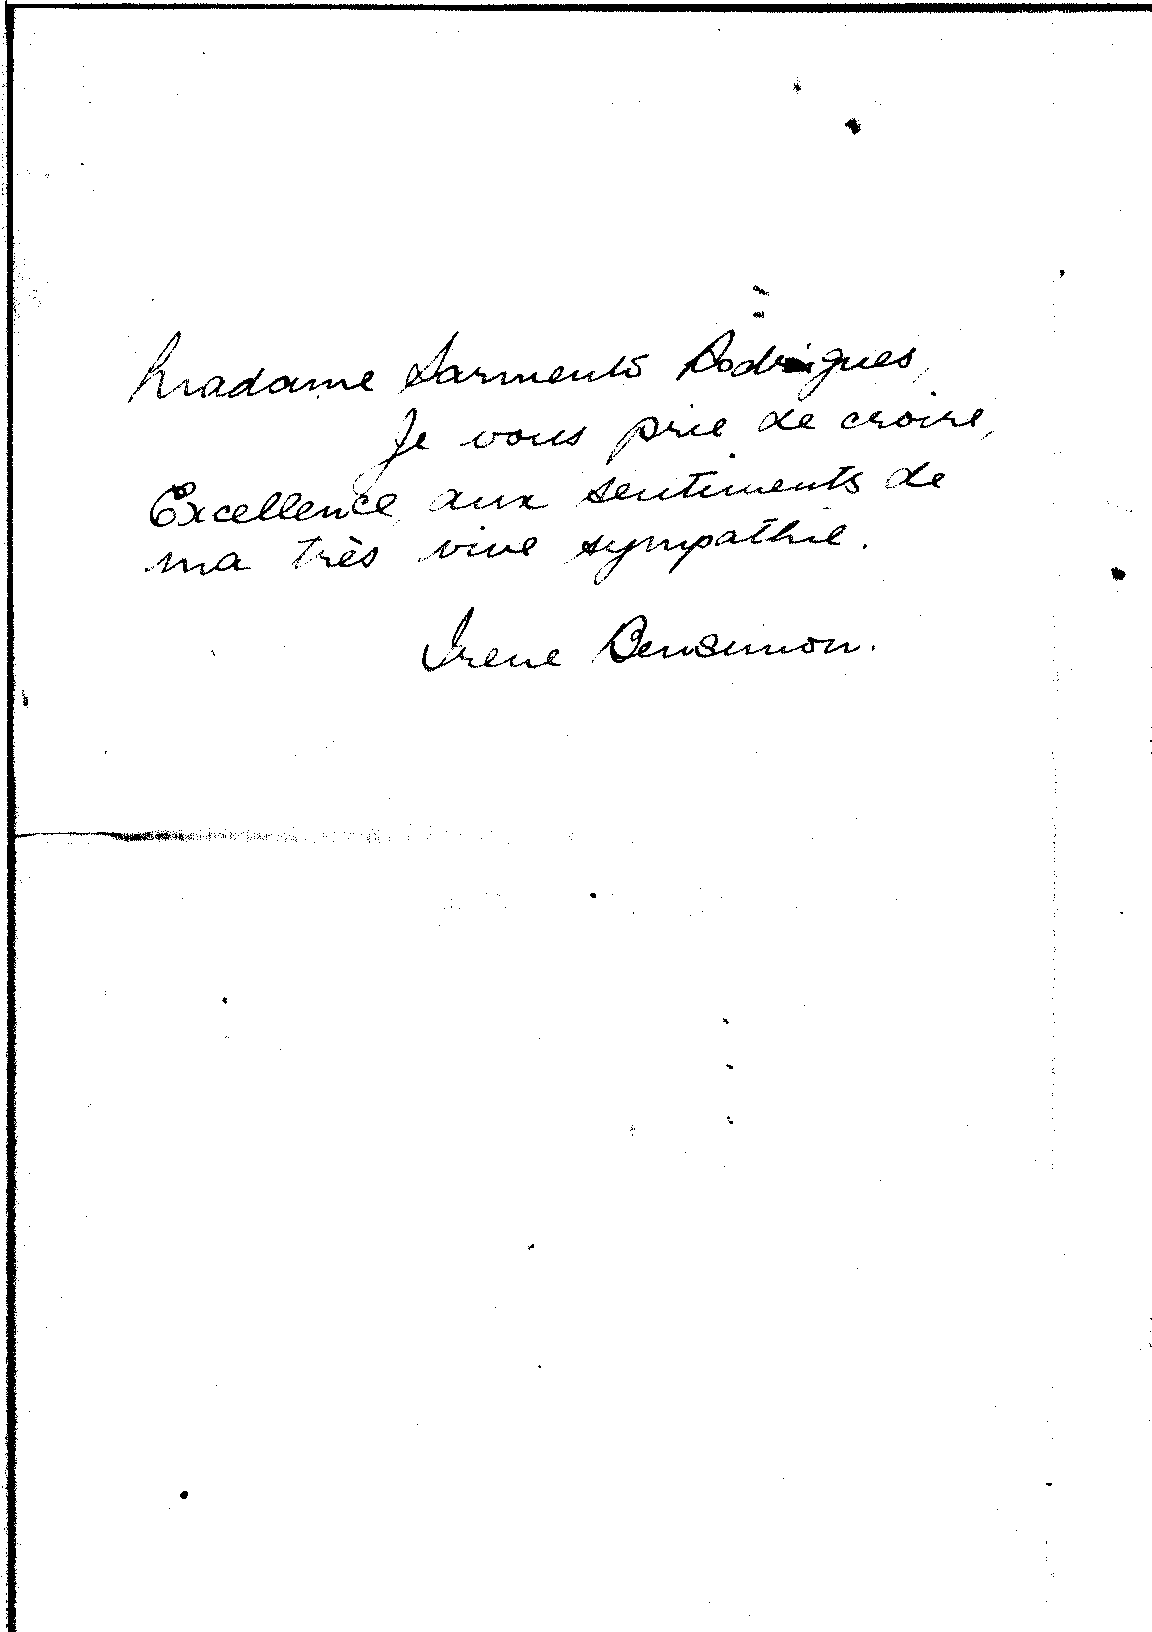 Madame Sarmento Rodrigues,
Je vous prie de croire,
Excellence, aux sentiments de
ma très vive sympathie.
Irene Bensimon.